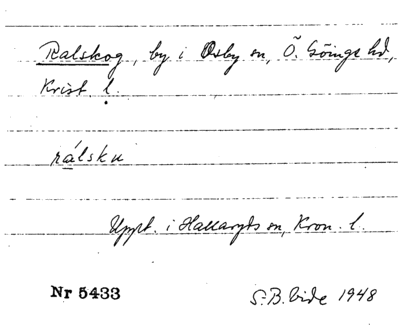 Ralskog, by i Osby sn, Ö. Göinge hd,
Krist. l.
rálsku
Uppt. i Hallaryds sn, Kron. l.
Nr 5433 S. B. Vide 1948